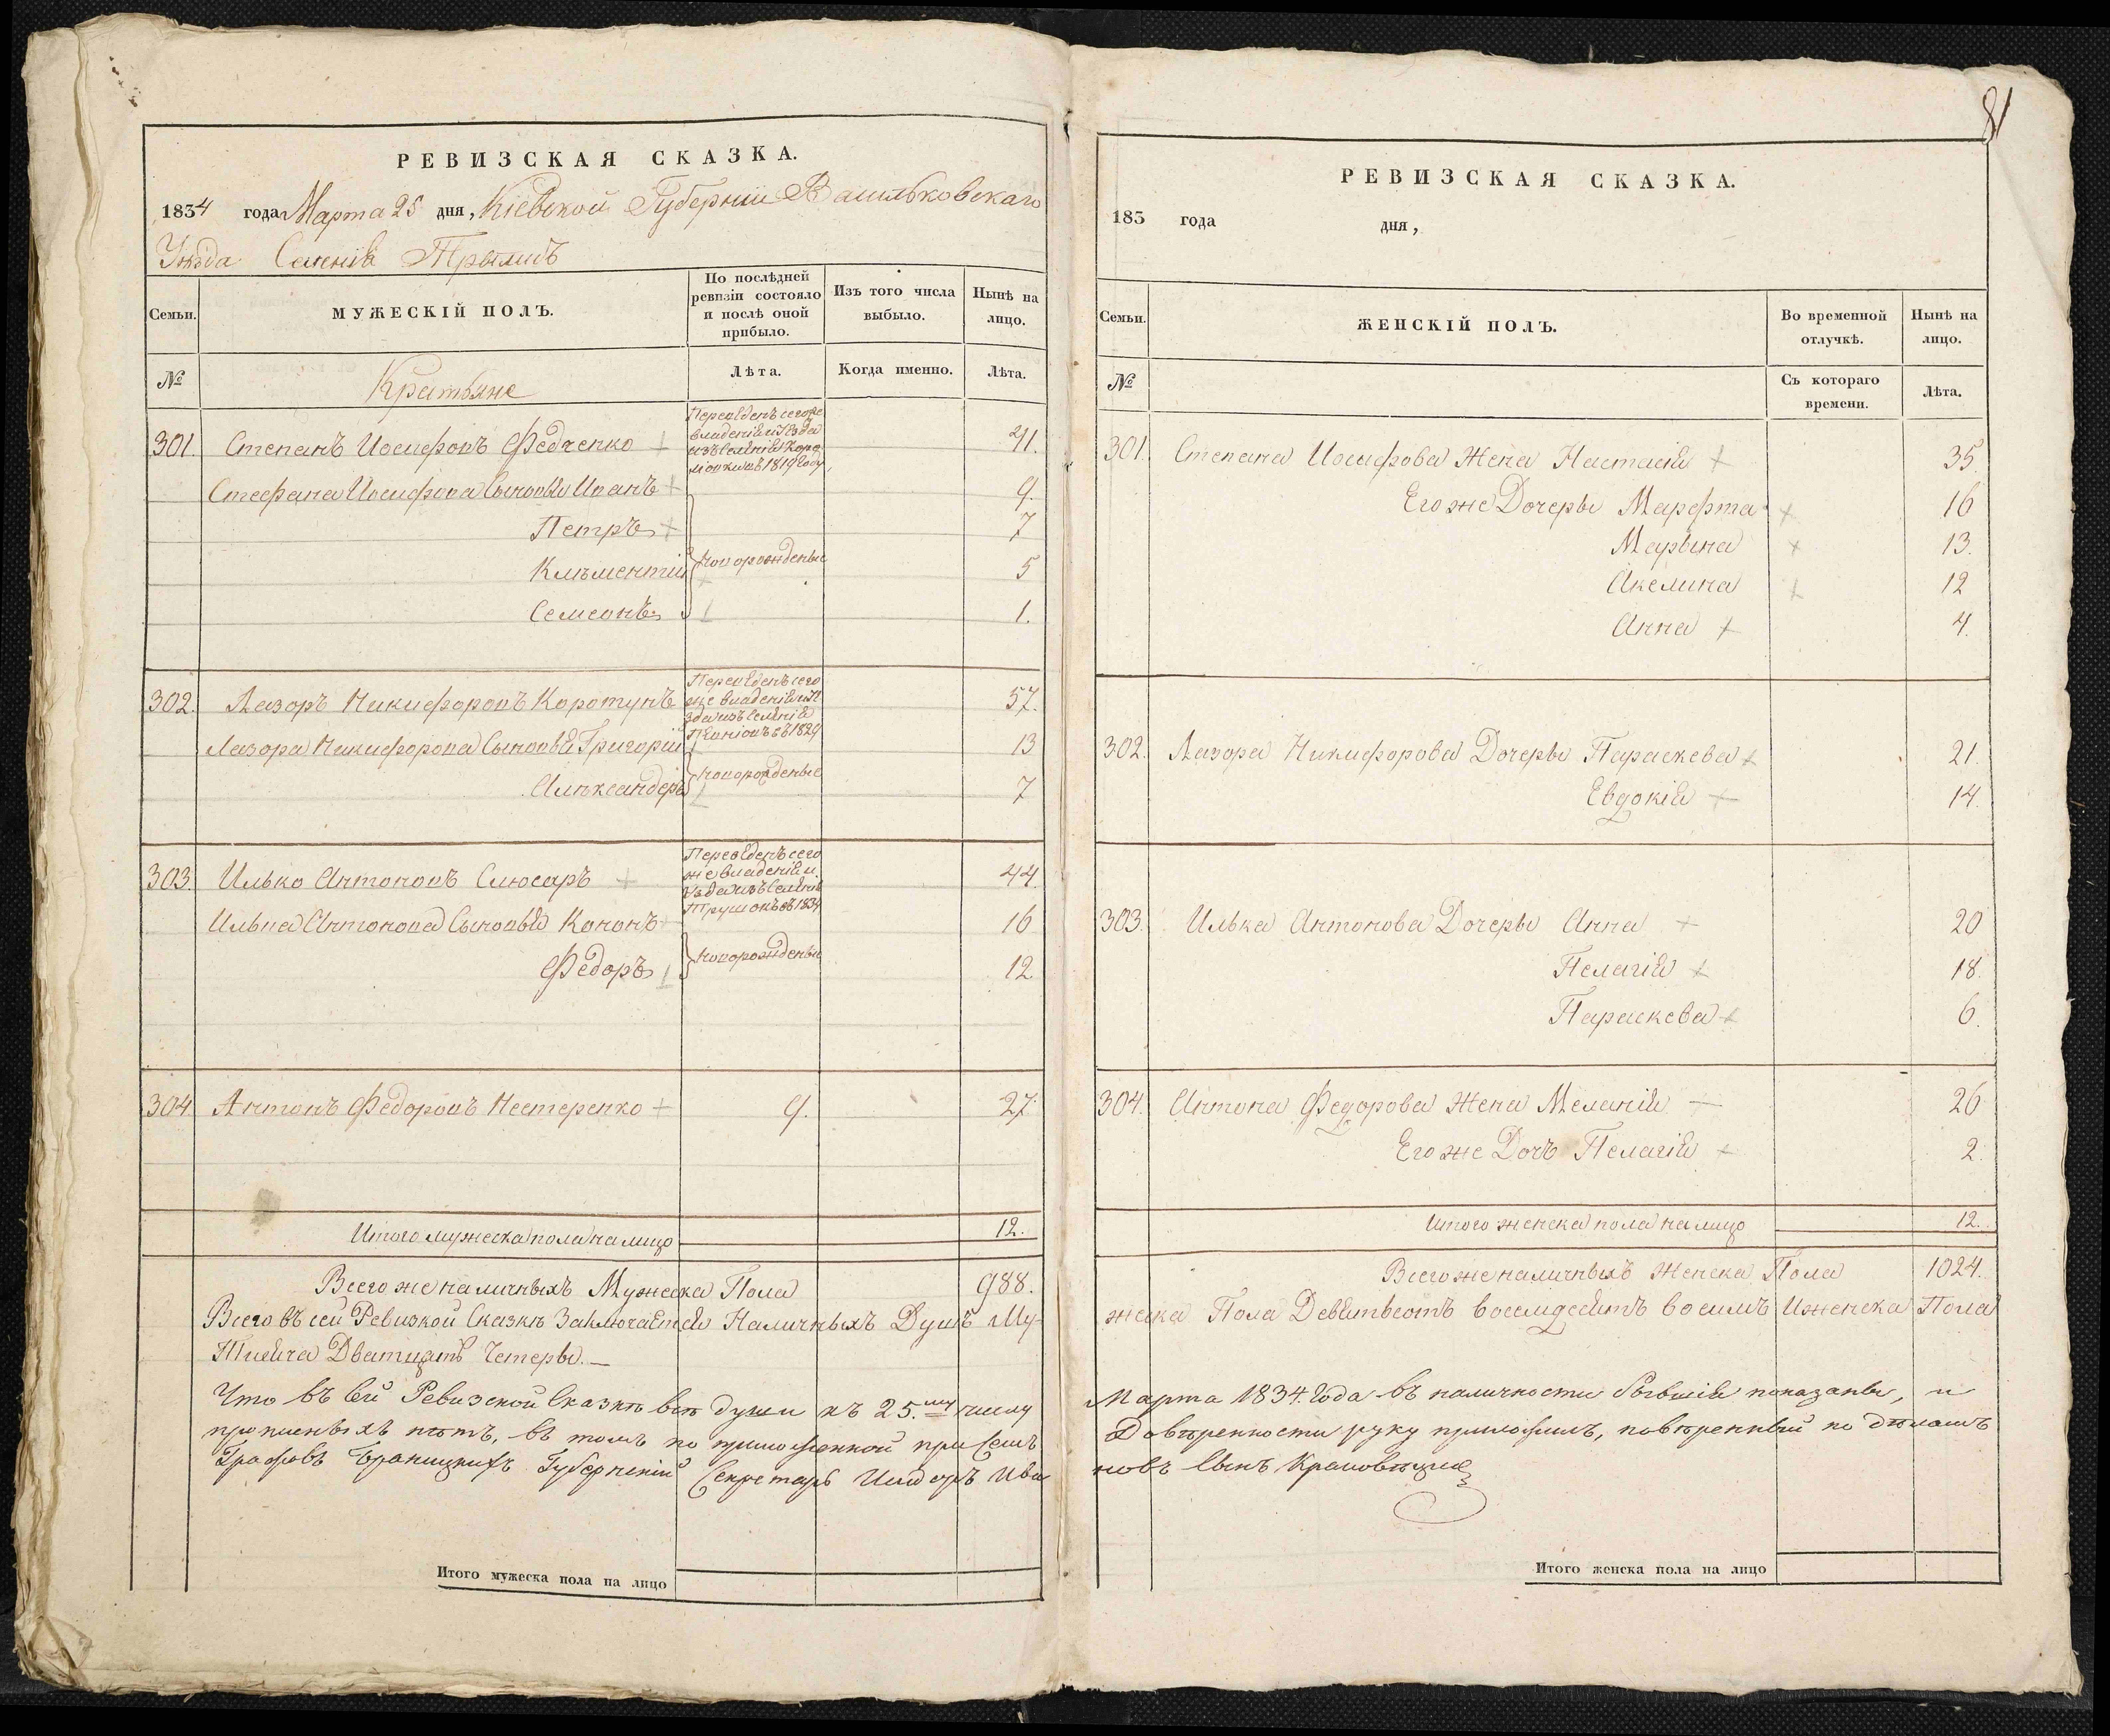 РЕВИЗСКАЯ СКАЗКА.
1834 года Марта 25 дня, Кіевской Губерніи Васильковскаго
Уѣзда Селенія
Семьи.
МУЖЕСКІЙ ПОЛЪ.
По послѣдней
ревизіи состояло
и послѣ оной
прибыло.
Изъ того числа
выбыло.
Нынѣ на
лицо.
№
Крестьяне
Лѣта.
Когда именно.
Лѣта.
Переведенъ сего же
владенія и Уѣзда
изъ Селенія
въ 1819 Году
301. Степанъ Иосифовъ Федченко 41.
Стефана Иосифова Сыновья Иванъ 9.
Петръ 7
Клѣментій Новорожденные 5
Семеонъ 1.
Переведенъ сего
же владенія и Уѣ
зда изъ Селенія
въ 1829
302. Лазоръ Никифоровъ Коротунъ 57.
Лазора Никифорова Сыновья Григорій 13
Алѣксандеръ Новорожденные 7
Переведенъ сего
же владенія и
Уѣзда изъ Селенія
Трушокъ въ 1834
303. Илько Антоновъ Слюсаръ 44.
Илька Антонова Сыновья Кононъ 16
Федоръ Новорожденые 12
304. Антонъ Федоровъ Нестеренко 9. 27.
Итого мужеска пола на лицо 12.
Всего же наличныхъ Мужеска Пола 988.
Всего въ сей Ревизкой Сказкѣ Заключается Наличныхъ Душъ Му-
Тисяча Дватцать Четеры.
Что въ сей Ревизской Сказкѣ всѣ души къ 25.му числу
прописныхъ нѣтъ, въ томъ по приложенной при семъ
Графовъ Браницкихъ Губернскій Секретарь Исидоръ Ива
Итого мужеска пола на лицо
81
РЕВИЗСКАЯ СКАЗКА.
183 года дня,
Семьи.
ЖЕНСКІЙ ПОЛЪ.
Во временной
отлучкѣ.
Нынѣ на
лицо.
№
Съ котораго
времени.
Лѣта.
301. Степана Иосифова Жена Настасія 35.
Его же Дочеры Марфта 16
Марьина 13.
Акелина 12
Анна 4.
302. Лазора Никифорова Дочеры Параскева 21.
Евдокія 14.
303. Илька Антонова Дочеры Анна 20
Пелагія 18.
Параскева 6.
304. Антона Федорова Жена Меланія 26
Его же Дочъ Пелагія 2.
Итого женска пола на лицо 12.
Всего же наличныхъ Женска Пола 1024.
жеска Пола Девятьсотъ восемдесятъ восимъ Иженска Пола
Марта 1834. Года въ наличности бывшія показаны, и
Довѣренности руку приложилъ, повѣренный по дѣламъ
новъ Сынъ
Итого женска пола на лицо